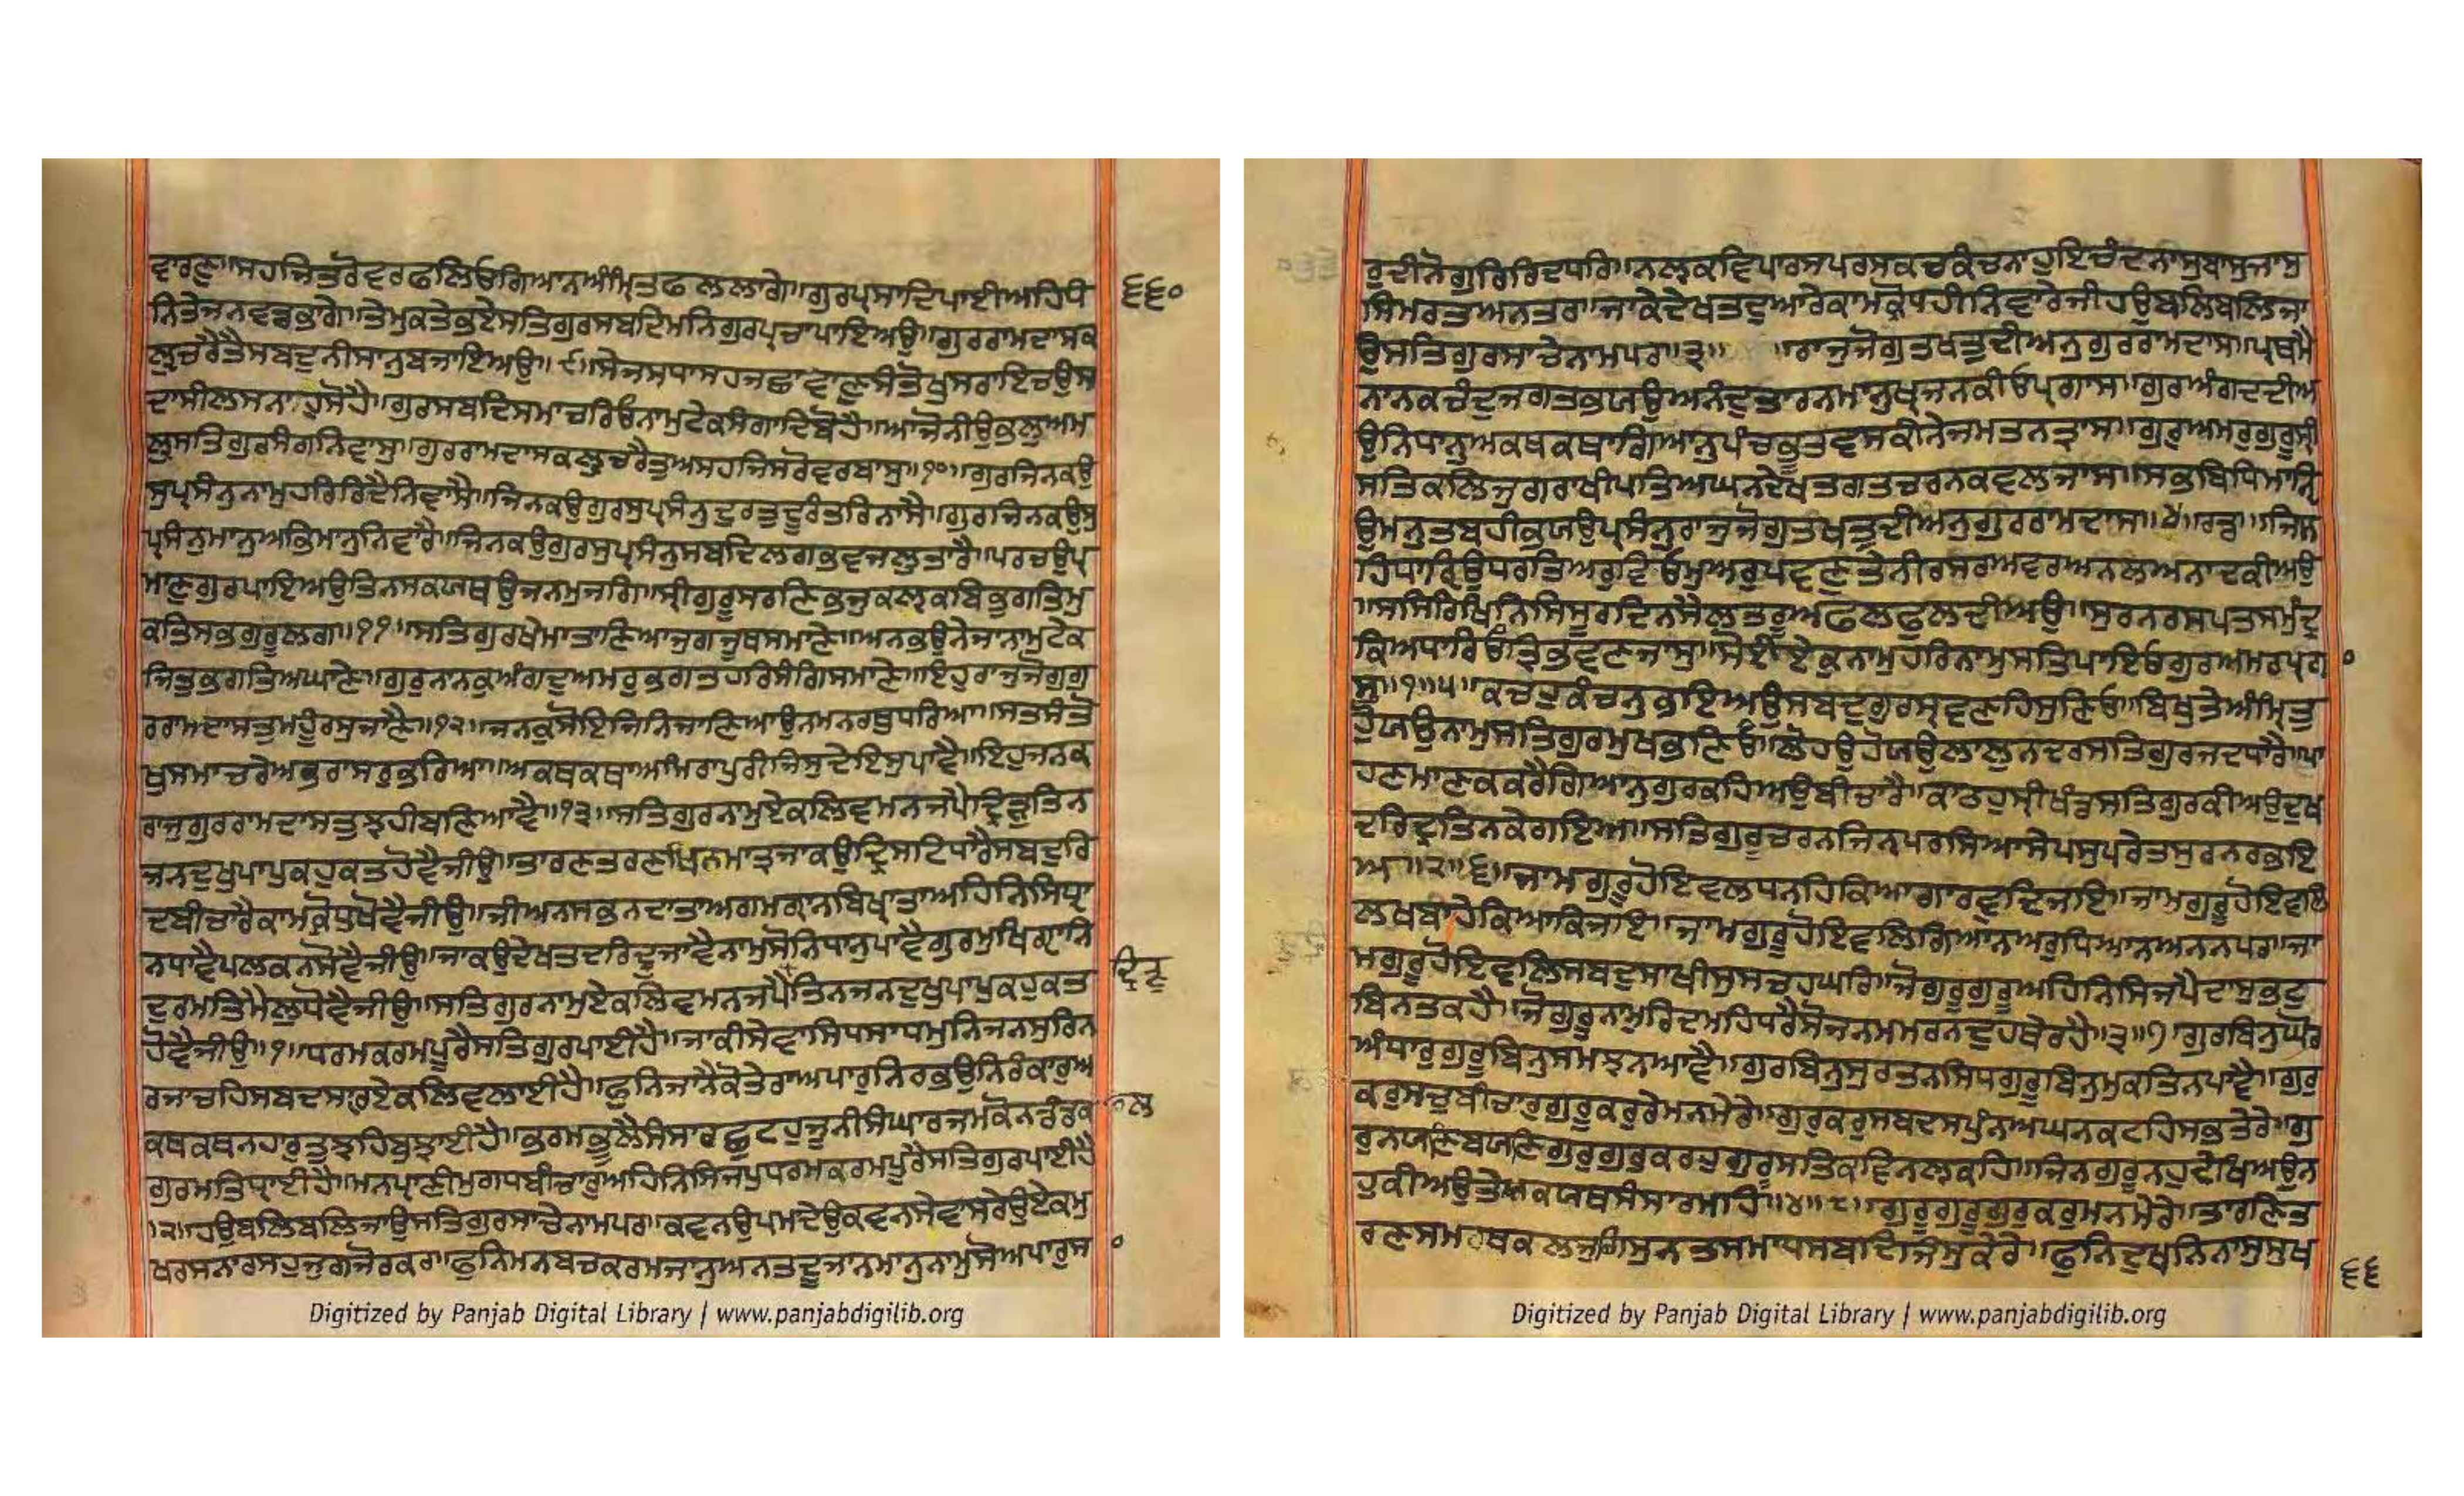 ਵਾਰਣੁ॥ਸਹਜਿਤਰੋਵਰਫਲਿਓਗਿਆਨਅੰਮ੍ਰਿਤਫਲਲਾਗੇ॥ਗੁਰਪ੍ਰਸਾਦਿਪਾਈਅਹਿਧੰ
੬੬੦
ਨਿਤੇਜਨਵਡਭਾਗੇ॥ਤੇਮੁਕਤੇਭਏਸਤਿਗੁਰਸਬਦਿਮਨਿਗੁਰਪਰਚਾਪਾਇਅਉ॥ਗੁਰਰਾਮਦਾਸਕ
ਲੁਚਰੈਤੈਸਬਦਨੀਸਾਨੁਬਜਾਇਅਉ॥੯॥ਸੇਜਸਧਾਸਹਜਛਾਵਾਣੁਸੰਤੋਖੁਸਰਾਇਚਉਸ
ਦਾਸੀਲਸਨਾਹੁਸੋਹੈ॥ਗੁਰਸਬਦਿਸਮਾਚਰਿਓਨਾਮੁਟੇਕਸੰਗਾਦਿਬੋਹੈ॥ਆਜੋਨੀਉਭਲੁਅਮ
ਲੁਸਤਿਗੁਰਸੰਗਨਿਵਾਸੁ॥ਗੁਰਰਾਮਦਾਸਕਲੁਚਰੈਤੁਅਸਹਜਿਸਰੋਵਰਬਾਸੁ॥੧੦॥ਗੁਰਜਿਨਕਉ
ਸੁਪ੍ਰਸੰਨੁਨਾਮੁਹਰਿਰਿਦੈਨਿਵਾਸੈ॥ਜਿਨਕਉਗੁਰਸੁਪ੍ਰਸੰਨੁਦੁਰਤੁਦੂਰੰਤਰਿਨਾਸੈ॥ਗੁਰਜਿਨਕਉਸੁ
ਪ੍ਰਸੰਨੁਮਾਨੁਅਭਿਮਾਨੁਨਿਵਾਰੈ॥ਜਿਨਕਉਗੁਰਸੁਪ੍ਰਸੰਨੁਸਬਦਿਲਗਭਵਜਲੁਤਾਰੈ॥ਪਰਚਉਪ੍ਰ
ਮਾਣੁਗੁਰਪਾਇਅਉਤਿਨਸਕਯਥਉਜਨਮੁਜਗਿ॥ਸ੍ਰੀਗੁਰੂਸਰਣਿਭਜੁਕਲ੍ਯਕਬਿਭੁਗਤਿਮੁ
ਕਤਿਸਭਗੁਰੂਲਗ॥੧੧॥ਸਤਿਗੁਰਖੇਮਾਤਾਣਿਆਜੁਗਜੂਥਸਮਾਣੇ॥ਅਨਭਉਨੇਜਾਨਾਮੁਟੇਕ
ਜਿਤੁਭਗਤਿਅਘਾਣੇ॥ਗੁਰੁਨਾਨਕੁਅੰਗਦੁਅਮਰੁਭਗਤਹਰਿਸੰਗਿਸਮਾਣੇ॥ਇਹੁਰਾਜੁਜੋਗੁਗੁ
ਰਰਾਮਦਾਸਤੁਮਹੂੰਰਸੁਜਾਣੈ॥੧੨॥ਜਨਕੁਸੋਇਜਿਨਿਜਾਣਿਆਉਨਮਨਰਥੁਧਰਿਆ॥ਸਤਸੰਤੋ
ਖੁਸਮਾਚਰੇਅਭਰਾਸਰੁਭਰਿਆ॥ਅਕਥਕਥਾਅਮਰਾਪੁਰੀਜਿਸੁਦੇਇਸੁਪਾਵੈ॥ਇਹੁਜਨਕ
ਰਾਜੁਗੁਰਰਾਮਦਾਸਤੁਝਹੀਬਣਿਆਵੈ॥੧੩॥ਸਤਿਗੁਰਨਾਮੁਏਕਲਿਵਮਨਜਪੈਦ੍ਰਿੜ੍ਹੁਤਿਨ
ਜਨਦੁਖੁਪਾਪੁਕਹੁਕਤਹੋਵੈਜੀਉ॥ਤਾਰਣਤਰਣਖਿਨਮਾਤ੍ਰਜਾਕਉਦ੍ਰਿਸਟਿਧਾਰੈਸਬਦੁਰਿ
ਦਬੀਚਾਰੈਕਾਮਕ੍ਰੋਧਖੋਵੈਜੀਉ॥ਜੀਅਨਸਭਨਦਾਤਾਅਗਮਗ੍ਯਾਨਬਿਖ੍ਯਾਤਾਅਹਿਨਿਸਿਧ੍ਯਾ
ਨਧਾਵੈਪਲਕਨਸੋਵੈਜੀਉ॥ਜਾਕਉਦੇਖਤਦਰਿਦ੍ਰੁਜਾਵੈਨਾਮੁਸੋਨਿਧਾਨੁਪਾਵੈਗੁਰਮੁਖਿਗ੍ਯਾਨਿ
ਦੁਰਮਤਿਮੈਲੁਧੋਵੈਜੀਉ॥ਸਤਿਗੁਰਨਾਮੁਏਕਲਿਵਮਨਜਪੈਤਿਨਜਨਦੁਖੁਪਾਪੁਕਹੁਕਤ
ਦ੍ਰਿੜੁ
ਹੋਵੈਜੀਉ॥੧॥ਧਰਮਕਰਮਪੂਰੈਸਤਿਗੁਰਪਾਈਹੈ॥ਜਾਕੀਸੇਵਾਸਿਧਸਾਧਮੁਨਿਜਨਸੁਰਿਨ
ਰਜਾਚਹਿਸਬਦਸਾਰੁਏਕਲਿਵਲਾਈਹੈ॥ਫੁਨਿਜਾਨੈਕੋਤੇਰਾਅਪਾਰੁਨਿਰਭਉਨਿਰੰਕਾਰੁਅ
ਕਥਕਥਨਹਾਰੁਤੁਝਹਿਬੁਝਾਈਹੈ॥ਭਰਮਭੂਲੈਸੰਸਾਰਛੁਟਹੁਜੂਨੀਸੰਘਾਰਜਮਕੋਨਡੰਡਕ
ਲ
ਗੁਰਮਤਿਧ੍ਯਾਈਹੈ॥ਮਨਪ੍ਰਾਣੀਮੁਗਧਬੀਚਾਰੁਅਹਿਨਿਸਿਜਪੁਧਰਮਕਰਮਪੂਰੈਸਤਿਗੁਰਪਾਈਹੈ
॥੨॥ਹਉਬਲਿਬਲਿਜਾਉਸਤਿਗੁਰਸਾਚੇਨਾਮਪਰ॥ਕਵਨਉਪਮਦੇਉਕਵਨਸੇਵਾਸਰੇਉਏਕਮੁ
ਖਰਸਨਾਰਸਹੁਜੁਗਜੋਰਕਰ॥ਫੁਨਿਮਨਬਚਕਰਮਜਾਨੁਅਨਤਦੂਜਾਨਮਾਨੁਨਾਮੁਸੋਅਪਾਰੁਸ
Digitized by Panjab Digital Library | www.panjabdigilib.org
ਰੁਦੀਨੋਗੁਰਿਰਿਦਧਰਿ॥ਨਲ੍ਯਕਵਿਪਾਰਸਪਰਸਕਚਕੰਚਨਾਹੁਇਚੰਦਨਾਸੁਬਾਸੁਜਾਸੁ
ਸਿਮਰਤਅਨਤਰ॥ਜਾਕੇਦੇਖਤਦੁਆਰੇਕਾਮਕ੍ਰੋਧਹੀਨਿਵਾਰੇਜੀਹਉਬਲਿਬਲਿਜਾ
ਉਸਤਿਗੁਰਸਾਚੇਨਾਮਪਰ॥੩॥ ॥ਰਾਜੁਜੋਗੁਤਖਤੁਦੀਅਨੁਗੁਰਰਾਮਦਾਸ॥ਪ੍ਰਥਮੈ
ਨਾਨਕਚੰਦੁਜਗਤਭਯਉਅਨੰਦੁਤਾਰਨਮਾਨੁਖ੍ਯਜਨਕੀਓਪ੍ਰਗਾਸ॥ਗੁਰਅੰਗਦਦੀਅ
ਉਨਿਧਾਨੁਅਕਥਕਥਾਗਿਆਨੁਪੰਚਭੂਤਵਸਕੀਨੇਜਮਤਨਤ੍ਰਾਸ॥ਗੁਰੁਅਮਰੁਗੁਰੂਸ੍ਰੀ
ਸਤਿਕਲਿਜੁਗਰਾਖੀਪਤਿਅਘਨਦੇਖਤਗਤਚਰਨਕਵਲਜਾਸ॥ਸਭਬਿਧਿਮਾਨ੍ਯਿ
ਉਮਨੁਤਬਹੀਭਯਉਪ੍ਰਸੰਨੁਰਾਜੁਜੋਗੁਤਖਤੁਦੀਅਨੁਗੁਰਰਾਮਦਾਸ॥੪॥ਰਡ॥ਜਿਸ
ਹਿਧਾਰ੍ਯਿਉਧਰਤਿਅਰੁਵਿਓਮੁਅਰੁਪਵਣੁਤੇਨੀਰਸਰਅਵਰਅਨਲਅਨਾਦਕੀਅਉ
॥ਸਸਿਰਿਖਿਨਿਸਿਸੂਰਦਿਨਸੈਲਤਰੂਅਫਲਫੁਲਦੀਅਉ॥ਸੁਰਨਰਸਪਤਸਮੁੰਦ੍ਰ
ਕਿਅਧਾਰਿਓਤ੍ਰਿਭਵਣਜਾਸੁ॥ਸੋਈਏਕੁਨਾਮੁਹਰਿਨਾਮੁਸਤਿਪਾਇਓਗੁਰਅਮਰਪ੍ਰਗਾ
ਸੁ॥੧॥੫॥ਕਚਹੁਕੰਚਨੁਭਇਅਉਸਬਦੁਗੁਰਸ੍ਰਵਣਹਿਸੁਣਿਓ॥ਬਿਖੁਤੇਅੰਮ੍ਰਿਤੁ
ਹੁਯਉਨਾਮੁਸਤਿਗੁਰਮੁਖਭਣਿਅਉ॥ਲੋਹਉਹੋਯਉਲਾਲੁਨਦਰਸਤਿਗੁਰਜਦਧਾਰੈ॥ਪਾ
ਹਣਮਾਣਕਕਰੈਗਿਆਨੁਗੁਰਕਹਿਅਉਬੀਚਾਰੈ॥ਕਾਠਹੁਸ੍ਰੀਖੰਡਸਤਿਗੁਰਕੀਅਉਦੁਖ
ਦਰਿਦ੍ਰਤਿਨਕੇਗਇਆ॥ਸਤਿਗੁਰੂਚਰਨਜਿਨ੍ਹਪਰਸਿਆਸੇਪਸੁਪਰੇਤਸੁਰਨਰਭਇ
ਅ॥੨॥੬॥ਜਾਮਗੁਰੂਹੋਇਵਲਧਨਹਿਕਿਆਗਾਰਵੁਦਿਜਇ॥ਜਾਮਗੁਰੂਹੋਇਵਲਿ
ਲਖਬਾਹੇਕਿਆਕਿਜਇ॥ਜਾਮਗੁਰੂਹੋਇਵਲਿਗਿਆਨਅਰੁਧਿਆਨਅਨਨਪਰ॥ਜਾ
ਮਗੁਰੂਹੋਇਵਲਿਸਬਦੁਸਾਖੀਸੁਸਚਹਘਰਿ॥ਜੋਗੁਰੂਗੁਰੂਅਹਿਨਿਸਿਜਪੈਦਾਸੁਭਟੁ
ਬਿਨਤਕਹੈ॥ਜੋਗੁਰੂਨਾਮੁਰਿਦਮਹਿਧਰੈਸੋਜਨਮਮਰਨਦੁਹਥੇਰਹੈ॥੩॥੭॥ਗੁਰਬਿਨੁਘੋਰ
ਅੰਧਾਰੁਗੁਰੂਬਿਨੁਸਮਝਨਆਵੈ॥ਗੁਰਬਿਨੁਸੁਰਤਨਸਿਧਗੁਰੂਬਿਨੁਮੁਕਤਿਨਪਾਵੈ॥ਗੁਰੁ
ਕਰੁਸਚੁਬੀਚਾਰੁਗੁਰੂਕਰੁਰੇਮਨਮੇਰੇ॥ਗੁਰੁਕਰੁਸਬਦਸਪੁੰਨਅਘਨਕਟਹਿਸਭਤੇਰੇ॥ਗੁ
ਰੁਨਯਣਿਬਯਣਿਗੁਰੁਗੁਰੁਕਰਹੁਗੁਰੂਸਤਿਕਵਿਨਲ੍ਯਕਹਿ॥ਜਿਨਗੁਰੂਨਹੁਦੇਖਿਅਉਨ
ਹੁਕੀਅਉਤੇਅਕਯਥਸੰਸਾਰਮਹਿ॥੪॥੮॥ਗੁਰੂਗੁਰੂਗੁਰੁਕਰੁਮਨਮੇਰੇ॥ਤਾਰਣਿਤ
ਰਣਸਮਰਥਕਲਜੁਗਿਸੁਨਤਸਮਾਧਸਬਦਿਜਿਸੁਕੇਰੇ॥ਫੁਨਿਦੁਖਨਿਨਾਸੁਸੁਖ
੬੬
Digitized by Panjab Digital Library | www.panjabdigilib.org